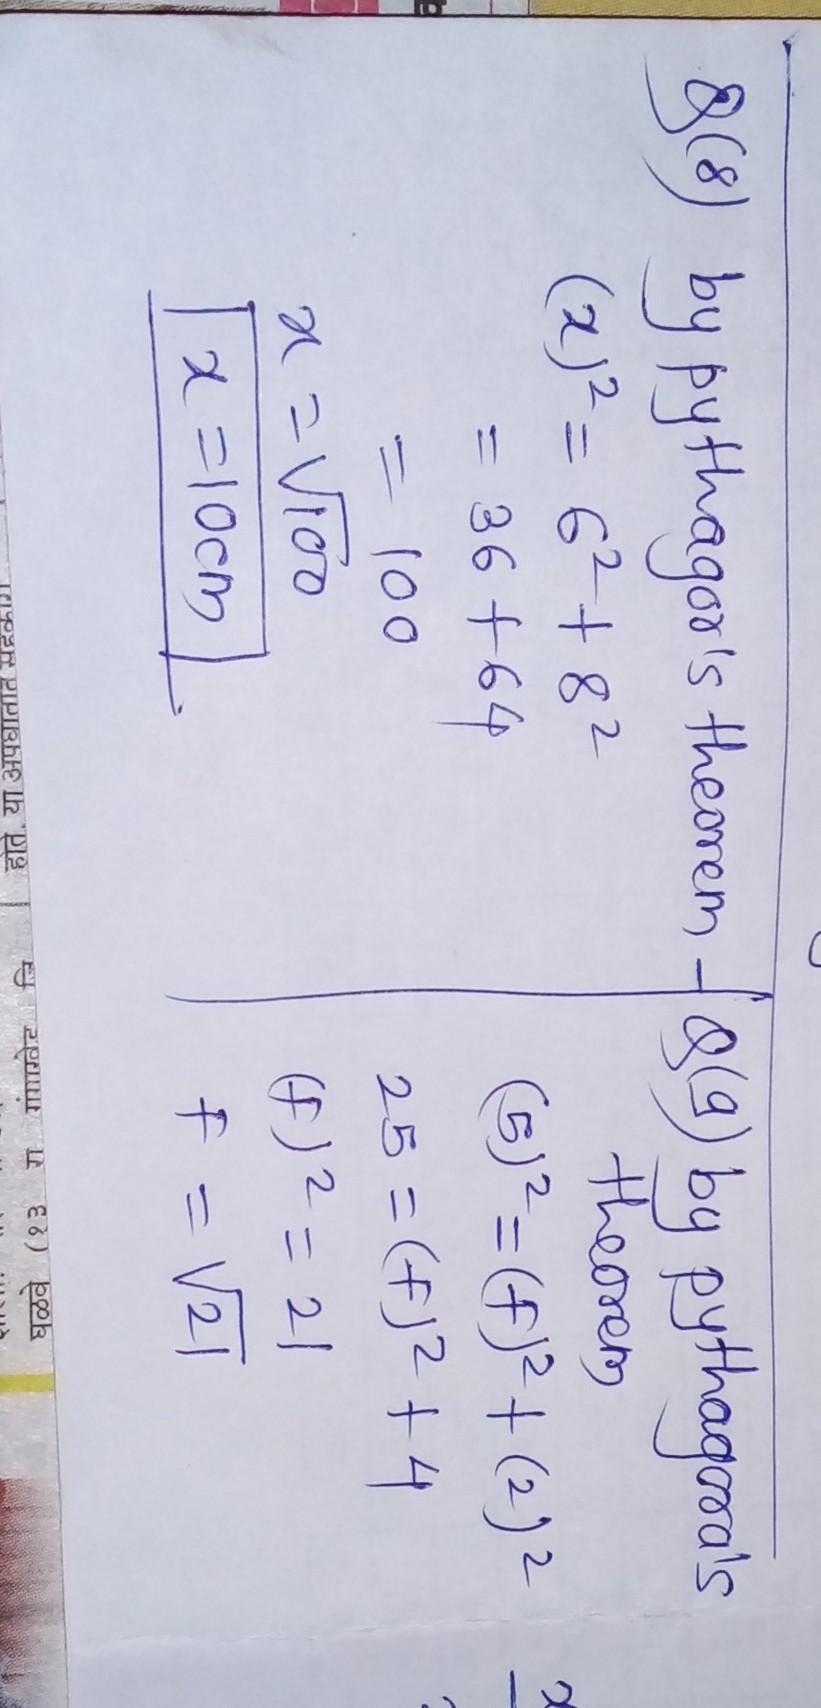 Q(8) by pythagor's theorem -
(x)² = 6² + 8²
= 36 + 64
= 100
x = √100
x = 10cm
Q(9) by pythagora's
theorem
(5)² = (f)² + (2)²
25 = (f)² + 4
(f)² = 21
f = √21
x
होते. या अपघातात
वेळेब ६१)